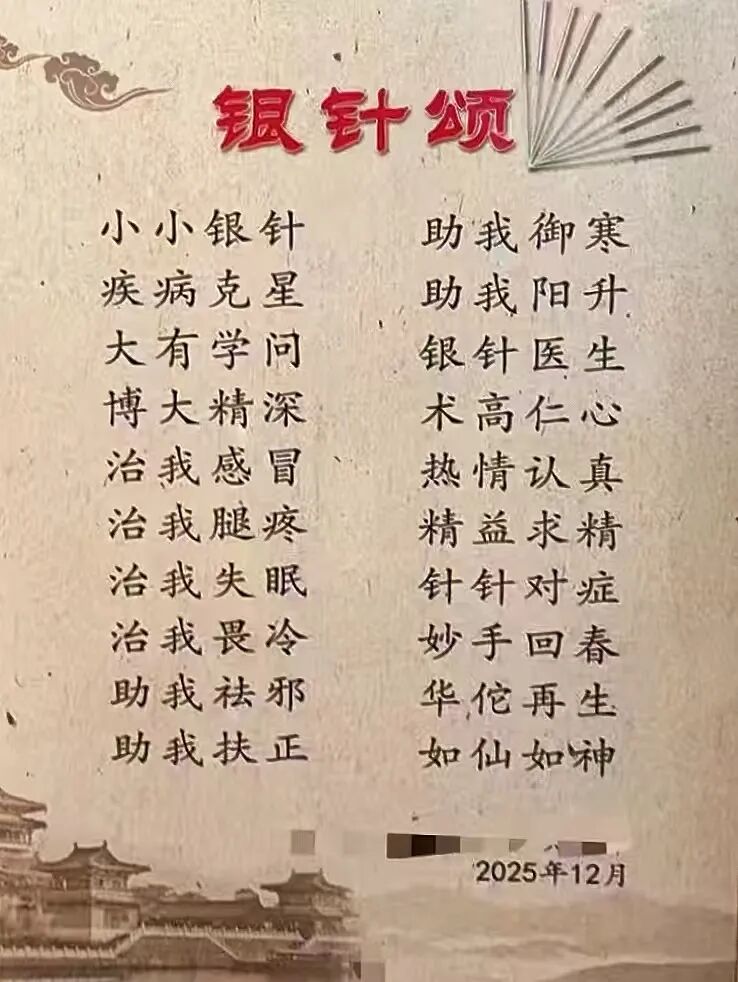 银针颂
小小银针
疾病克星
大有学问
博大精深
治我感冒
治我腿疼
治我失眠
治我畏冷
助我祛邪
助我扶正
助我御寒
助我阳升
银针医生
术高仁心
热情认真
精益求精
针针对症
妙手回春
华佗再生
如仙如神
2025年12月